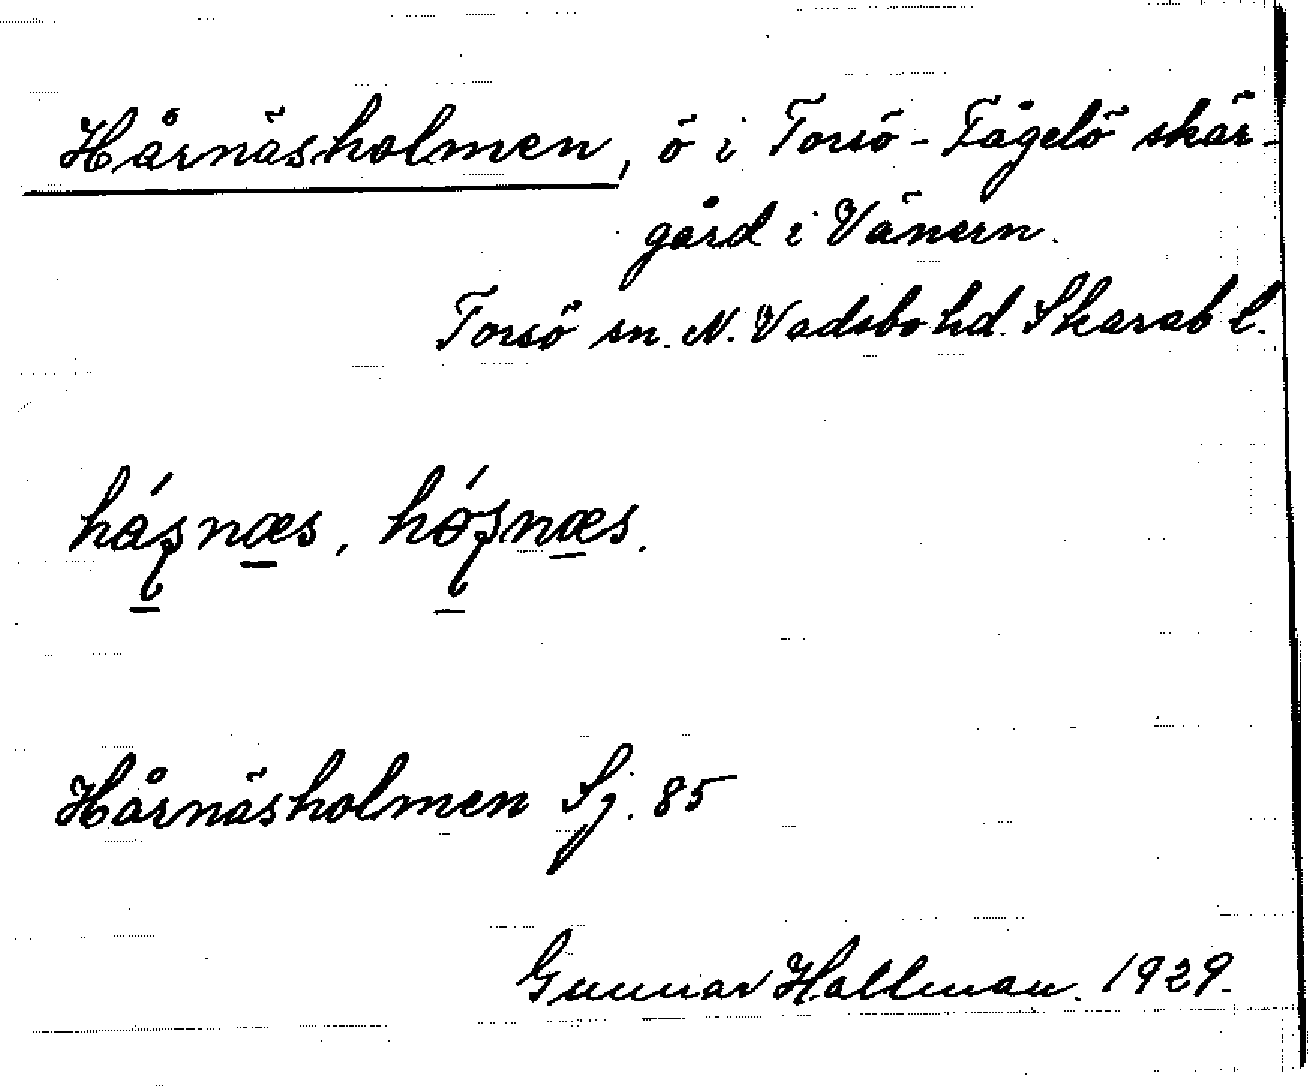 Hårnäsholmen, ö i Torsö-Fågelö skär-
gård i Vänern.
Torsö sn. N. Vadsbo hd. Skarab l.
Hårnäsholmen Sj. 85
Gunnar Hallman. 1929.